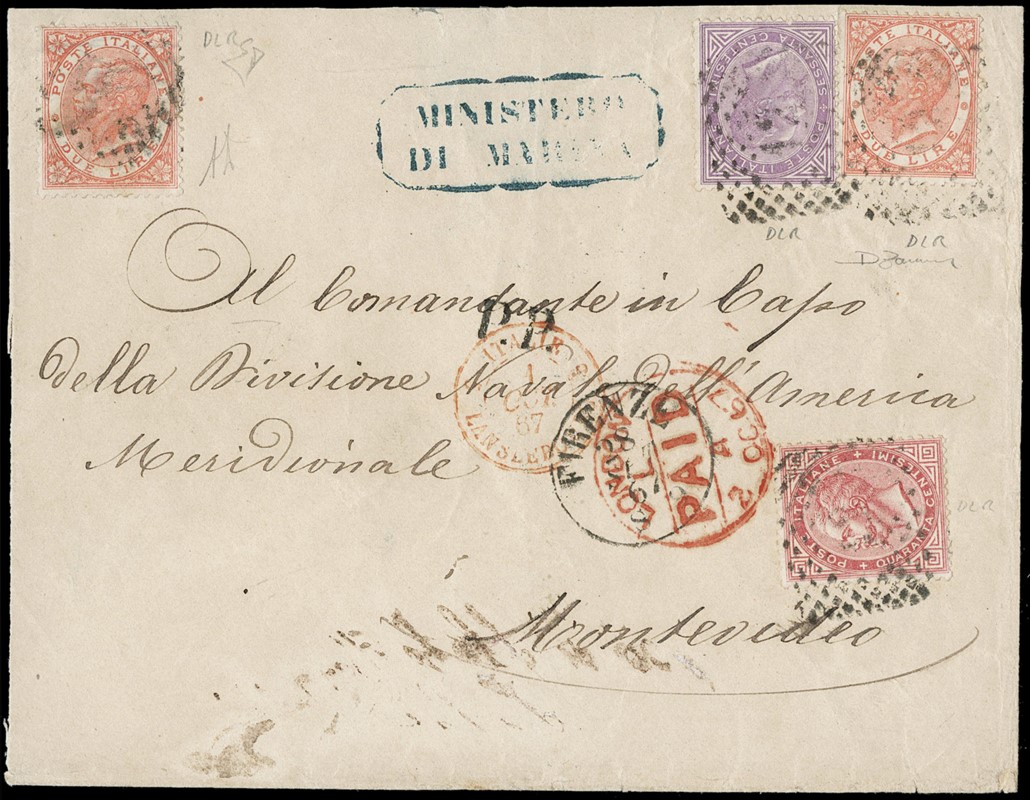 POSTE ITALIANE
DUE LIRE
DLR
MINISTERO
DI MARINA
POSTE ITALIANE
SESSANTA CENTESIMI
DLR
POSTE ITALIANE
DUE LIRE
DLR
Al Comandante in Capo
P.P.
della Divisione Navale dell'America
Meridionale
ITALIE
1
OCT
67
LANSLEBOURG
FIRENZE
28
67
LONDON
PAID
2 OC 67
POSTE ITALIANE
QUARANTA CENTESIMI
DLR
Montevideo